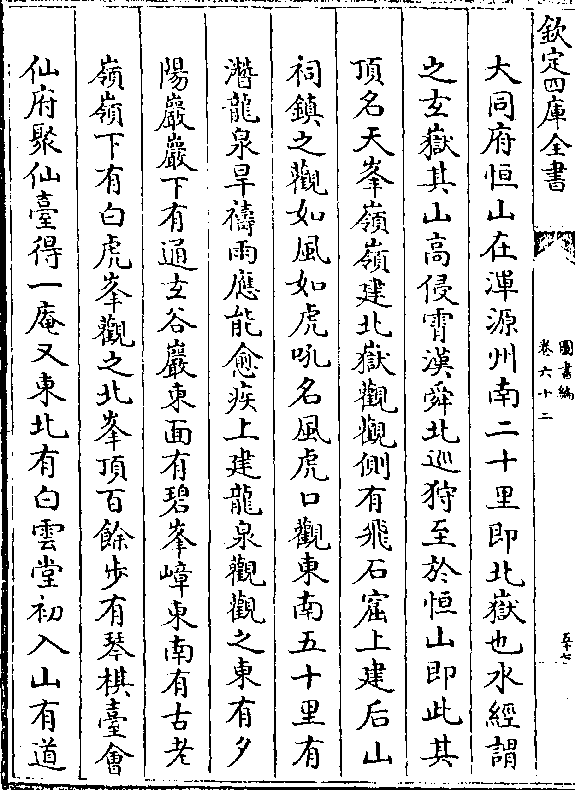 欽定四庫全書
圖書編
卷六十二
五十七
大同府恒山在渾源州南二十里即北嶽也水經謂
之玄嶽其山高侵霄漢舜北巡狩至於恒山即此其
頂名天峯嶺嶺建北嶽觀觀側有飛石窟上建后山
祠鎮之觀如風如虎吼名風虎口觀東南五十里有
潛龍泉旱禱雨應能愈疾上建龍泉觀觀之東有夕
陽巖巖下有通玄谷巖東面有碧峯嶂東南有古老
嶺嶺下有白虎峯觀之北峯頂百餘步有琴棋臺會
仙府聚仙臺得一庵又東北有白雲堂初入山有道